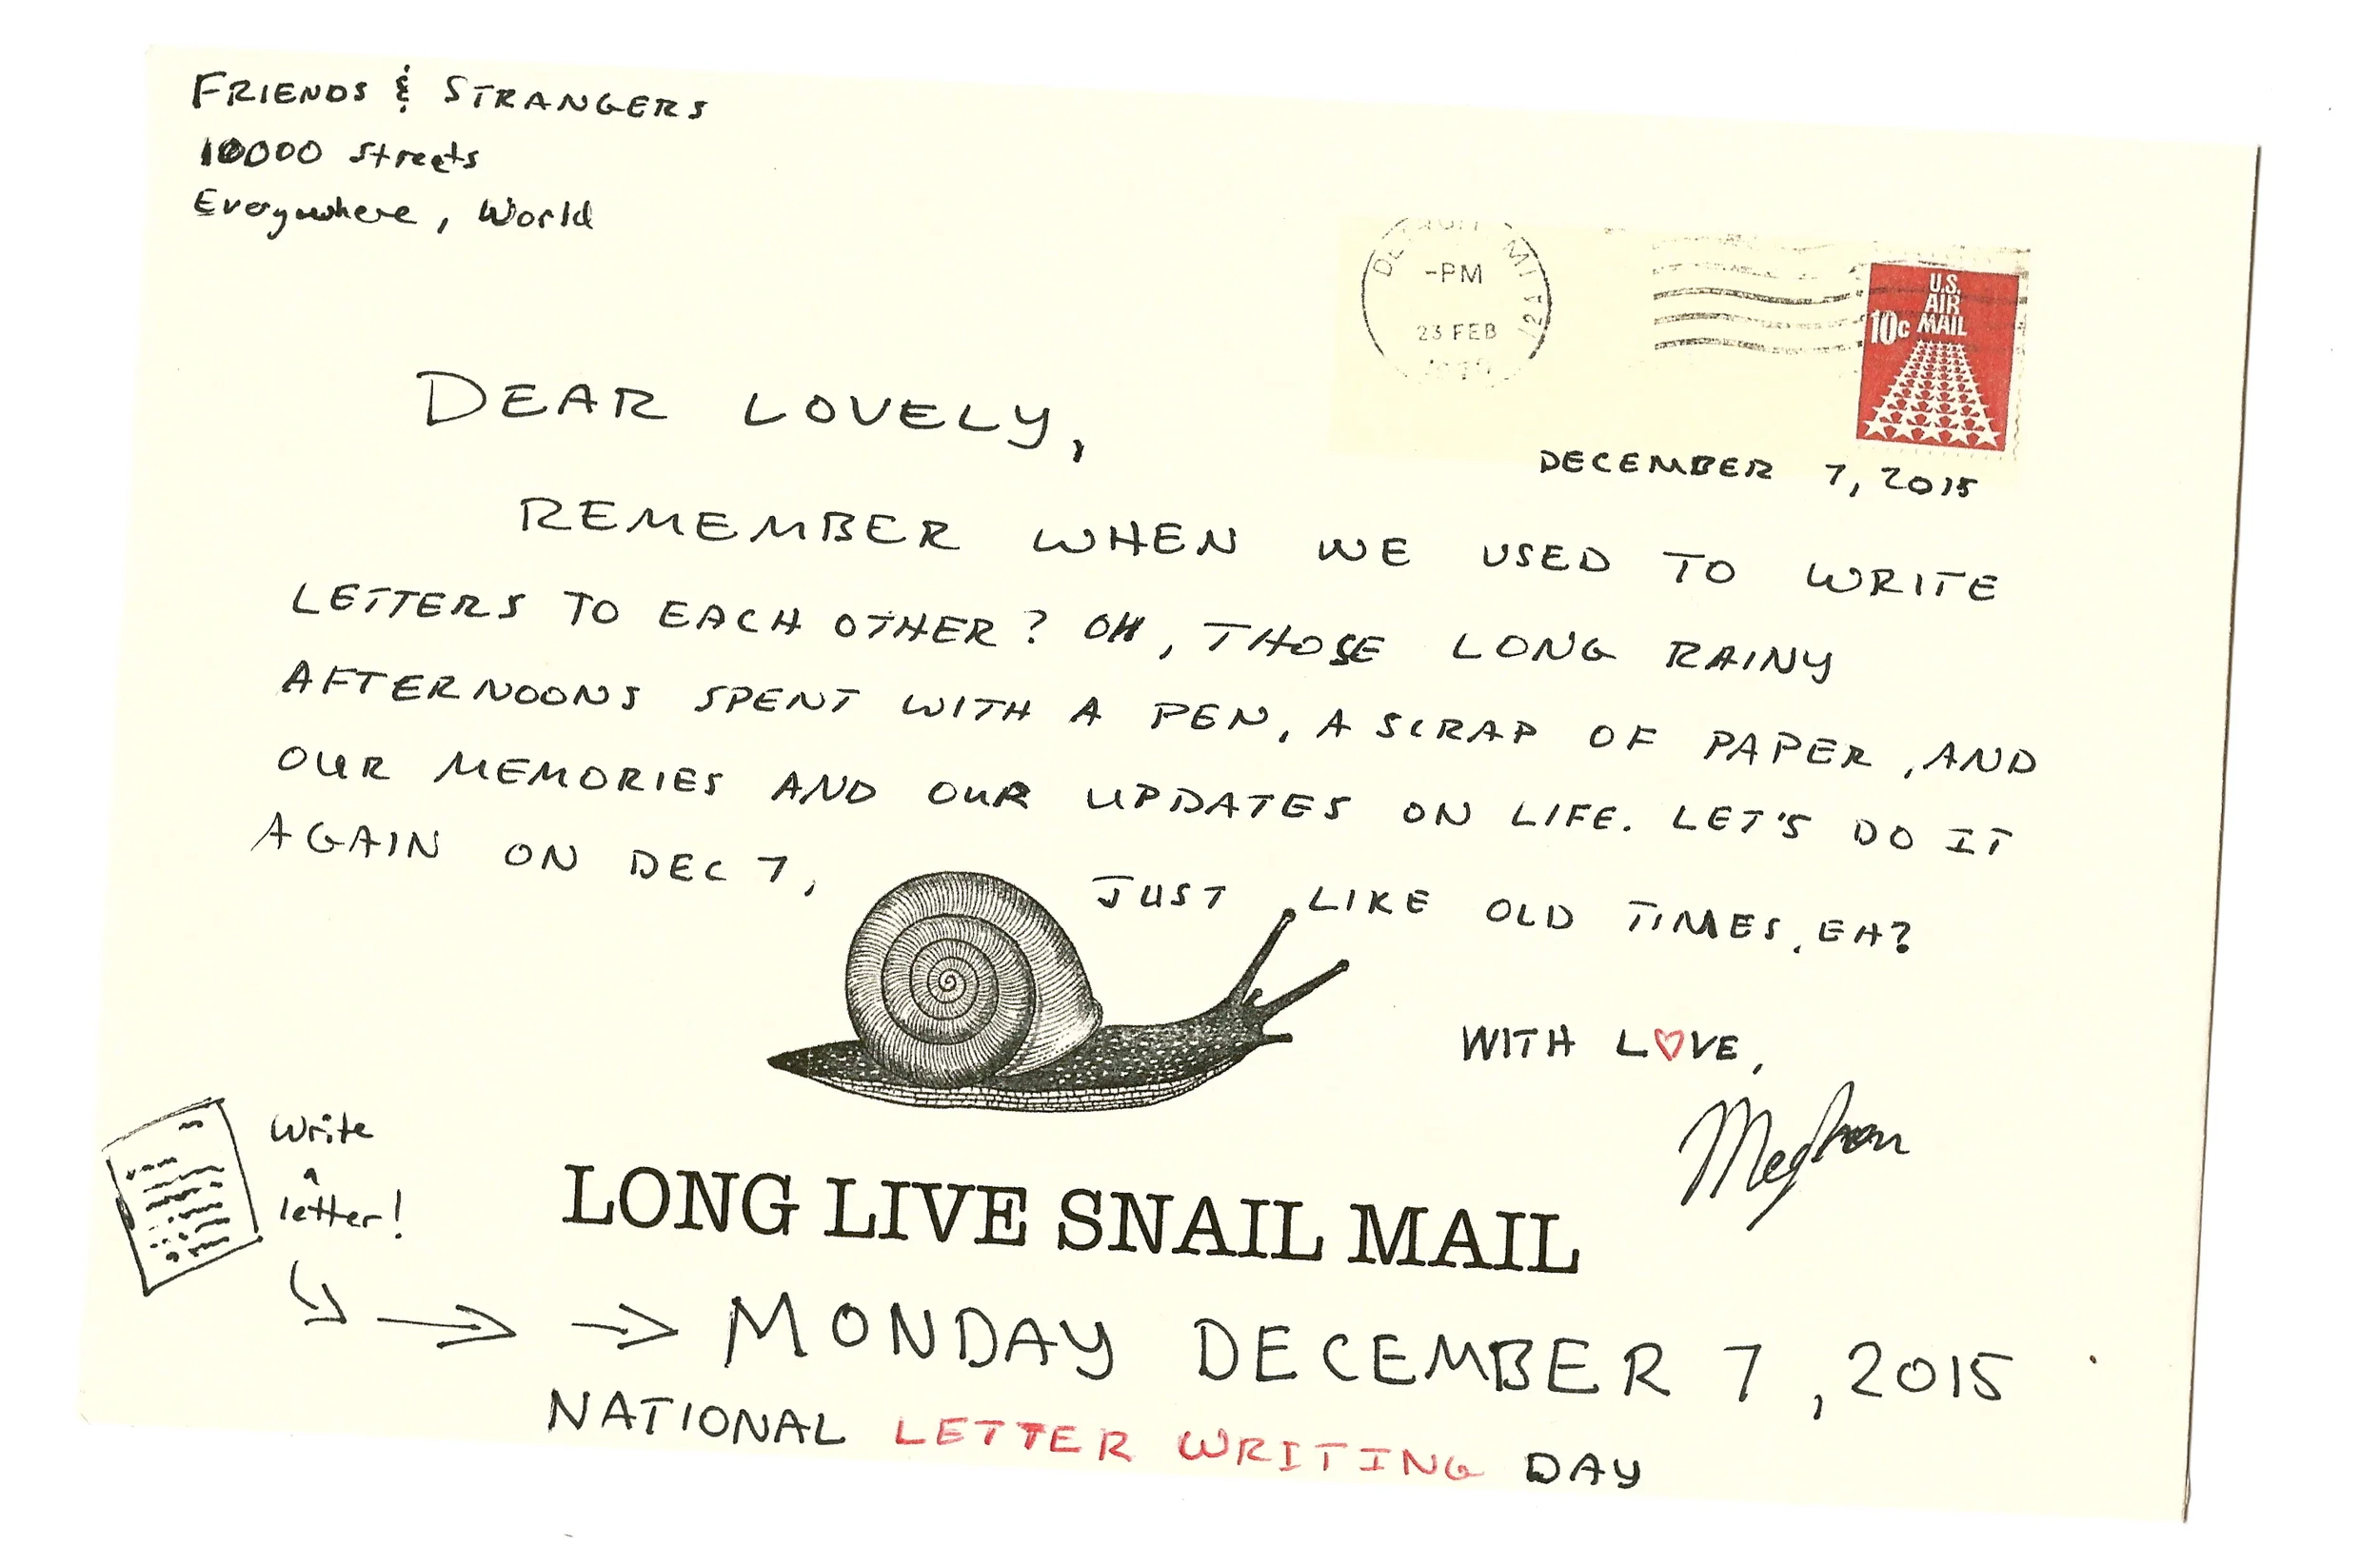 FRIENDS & STRANGERS
10000 Streets
Everywhere, World
DETROIT MI
-PM
23 FEB
U.S.
AIR
10c MAIL
DECEMBER 7, 2015
DEAR LOVELY,
REMEMBER WHEN WE USED TO WRITE
LETTERS TO EACH OTHER? OH, THOSE LONG RAINY
AFTERNOONS SPENT WITH A PEN, A SCRAP OF PAPER, AND
OUR MEMORIES AND OUR UPDATES ON LIFE. LET'S DO IT
AGAIN ON DEC 7, JUST LIKE OLD TIMES, EH?
WITH LOVE,
Meghan
Write
a
letter!
LONG LIVE SNAIL MAIL
MONDAY DECEMBER 7, 2015
NATIONAL LETTER WRITING DAY